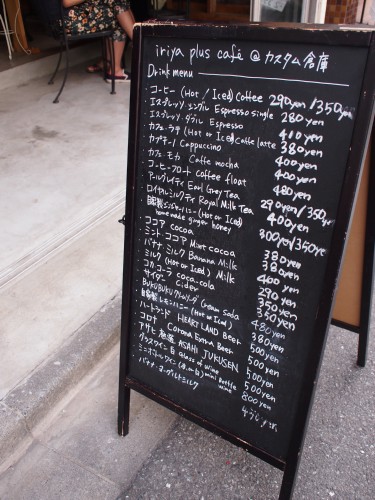 iriya plus café @ カスタム倉庫
Drink menu
・コーヒー (Hot / Iced) Coffee 290yen/350yen
・エスプレッソ シングル Espresso single 280yen
・エスプレッソ・ダブル Espresso 410yen
・カフェ・ラテ (Hot or Iced) Caffe latte 380yen
・カプチーノ Cappuccino 400yen
・カフェ・モカ Caffe mocha 400yen
・コーヒーフロート Coffee float 480yen
・アールグレイティ Earl Grey Tea 290yen/350yen
・ロイヤルミルクティ Royal Milk Tea 400yen
・自家製ジンジャーハニー (Hot or Iced) home made ginger honey 300yen/350yen
・ココア cocoa 380yen
・ミントココア Mint cocoa 380yen
・バナナミルク Banana Milk 400yen
・ミルク (Hot or Iced) Milk 290
・コカコーラ coca-cola 350yen
・サイダー Cider 350yen
・BUKUBUKUクリームソーダ Cream soda 480yen
・自家製レモンハニー (Hot or Iced) 380yen
・ハートランド HEARTLAND Beer 500yen
・コロナ Corona Extra Beer 500yen
・アサヒ 熟撰 ASAHI JUKUSEN 500yen
・グラスワイン glass of wine 500yen
・ミニボトルワイン mini bottle wine 800yen
・バナナ・ヨーグルトミルク